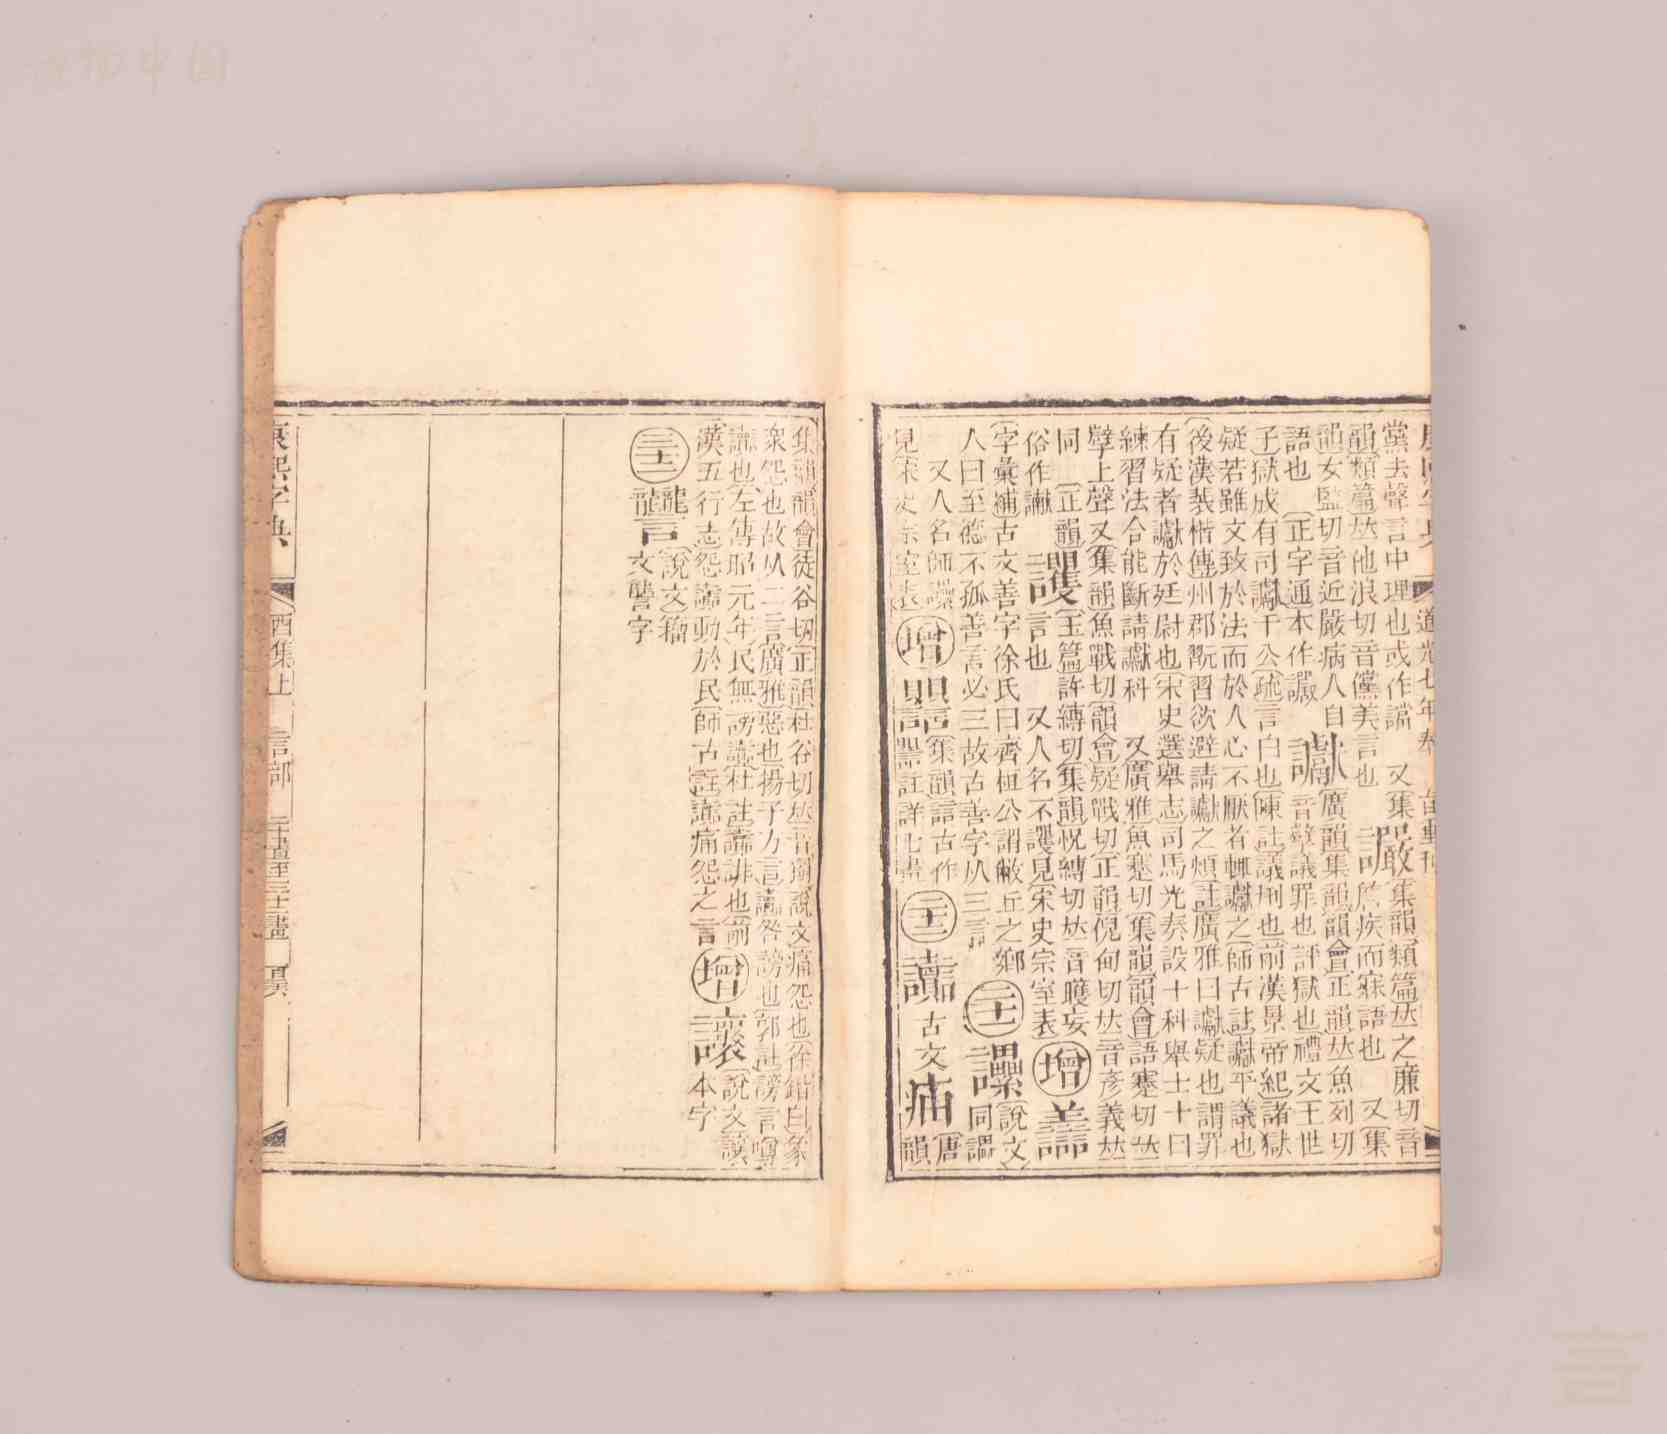 黨去聲言中理也或作讜 又集
韻類篇𠀤他浪切音儻美言也 讝 集韻類篇𠀤之廉切音
詀疾而寐語也 又集
韻女監切音近嚴病人自
語也 正字通本作讝 讞 廣韻集韻韻會正韻𠀤魚列切
音孼議罪也評獄也禮文王世
子獄成有司讞于公疏言白也陳註議刑也前漢景帝紀諸獄
疑若雖文致於法而於人心不厭者輒讞之師古註讞平議也
後漢襲楷傳州郡翫習欲避請讞之煩註廣雅曰讞疑也謂罪
有疑者讞於廷尉也宋史選舉志司馬光奏設十科舉士十曰
練習法令能斷請讞科 又廣雅魚蹇切集韻韻會語蹇切𠀤
孼上聲又集韻魚戰切韻會疑戰切正韻倪甸切𠀤音彥義𠀤
同 正韻
俗作讞 䪰 玉篇許縛切集韻怳縛切𠀤音矆妄
言也 又人名不䪰見宋史宗室表 增 譱
字彙補古文善字徐氏曰齊桓公謂敝丘之鄉
人曰至德不孤善言必三故古善字从三言 二十一 讛 說文
同謳
又人名師讛
見宋史宗室表 增 集韻詈古作
註詳七畫 二十二 讟 古文 𤶊 唐韻
集韻韻會徒谷切正韻杜谷切𠀤音獨說文痛怨也徐鍇曰象
衆怨也故从二言廣雅惡也揚子方言讟咎謗也郭註謗言噂
讟也左傳昭元年民無謗讟杜註讟誹也前
漢五行志怨讟動於民師古註讟痛怨之言 增 讓 說文讓
本字
三十二 說文籀
文讋字
康熙字典
酉集上 言部 二十畫至三十二畫
道光七年奉 旨重刊